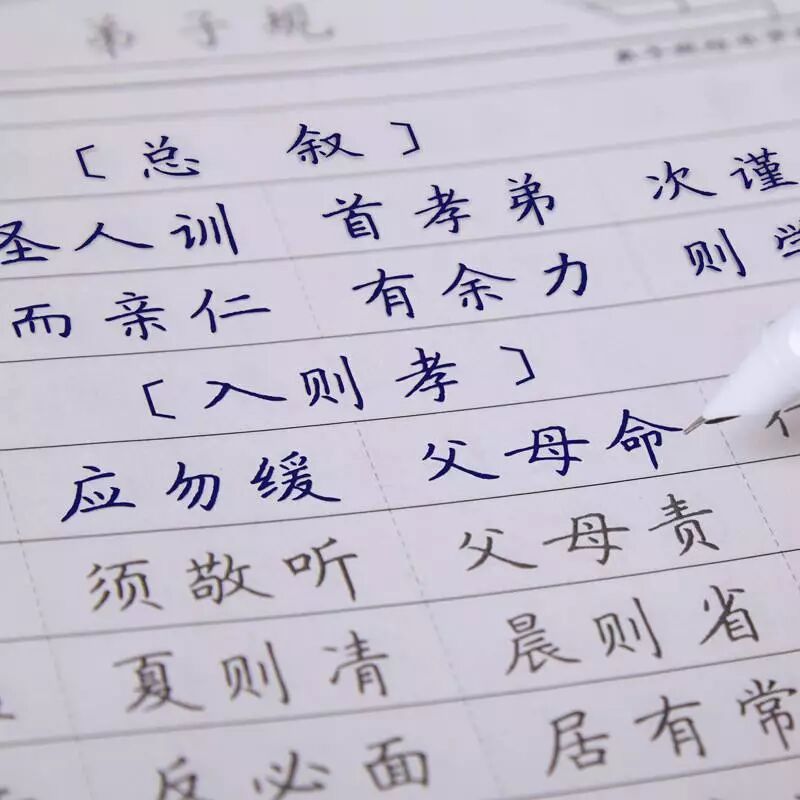 弟子规
〔总 叙〕
圣人训 首孝弟 次谨
而亲仁 有余力 则学
〔入则孝〕
应勿缓 父母命 行
须敬听 父母责
夏则凊 晨则省
反必面 居有常